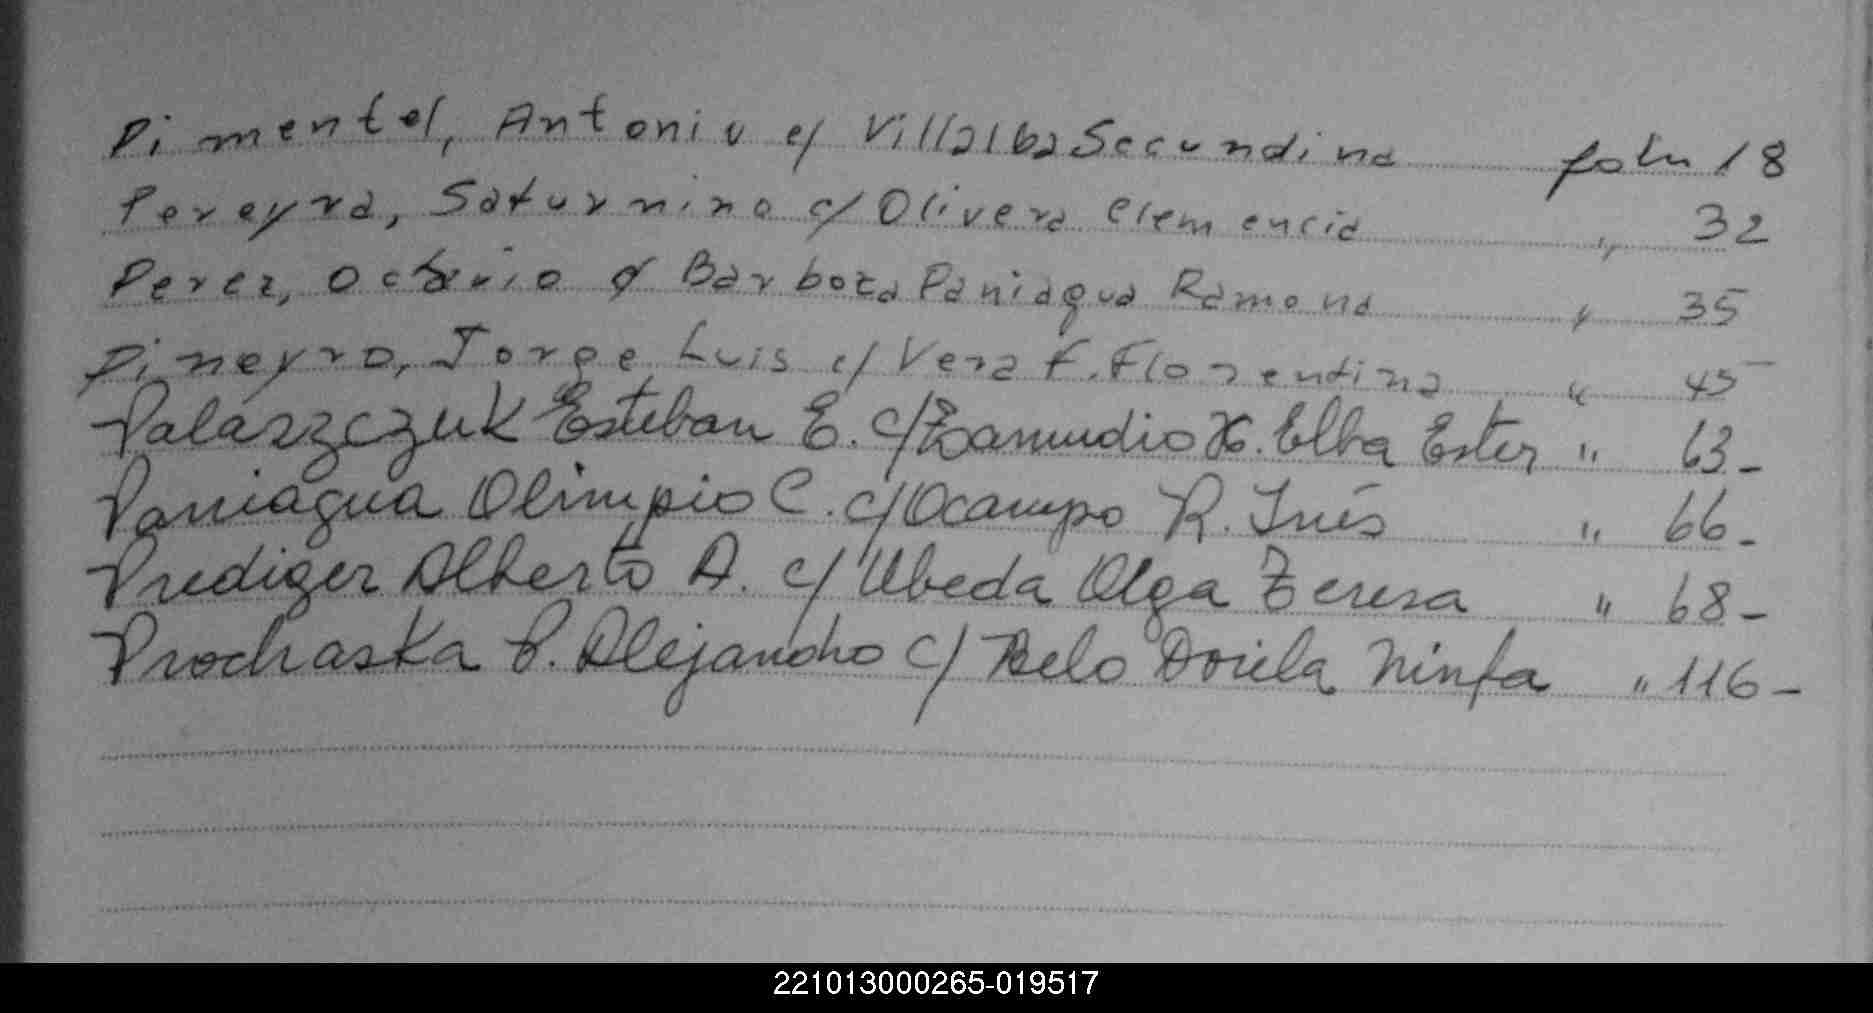 Pimentel, Antonio c/ Villalba Secundina folio 18
Pereyra, Saturnino c/ Olivera Clemencia " 32
Perez, Octavio c/ Barboza Paniagua Ramona " 35
Pineyro, Jorge Luis c/ Vera F. Florentina " 45
Palaszczuk Esteban E. c/ Zamudio H. Elba Ester " 63-
Paniagua Olimpio C. c/ Ocampo R. Inés " 66-
Prediger Alberto A. c/ Ubeda Olga Teresa " 68-
Prochaska P. Alejandro c/ Belo Doriela Ninfa " 116-
221013000265-019517